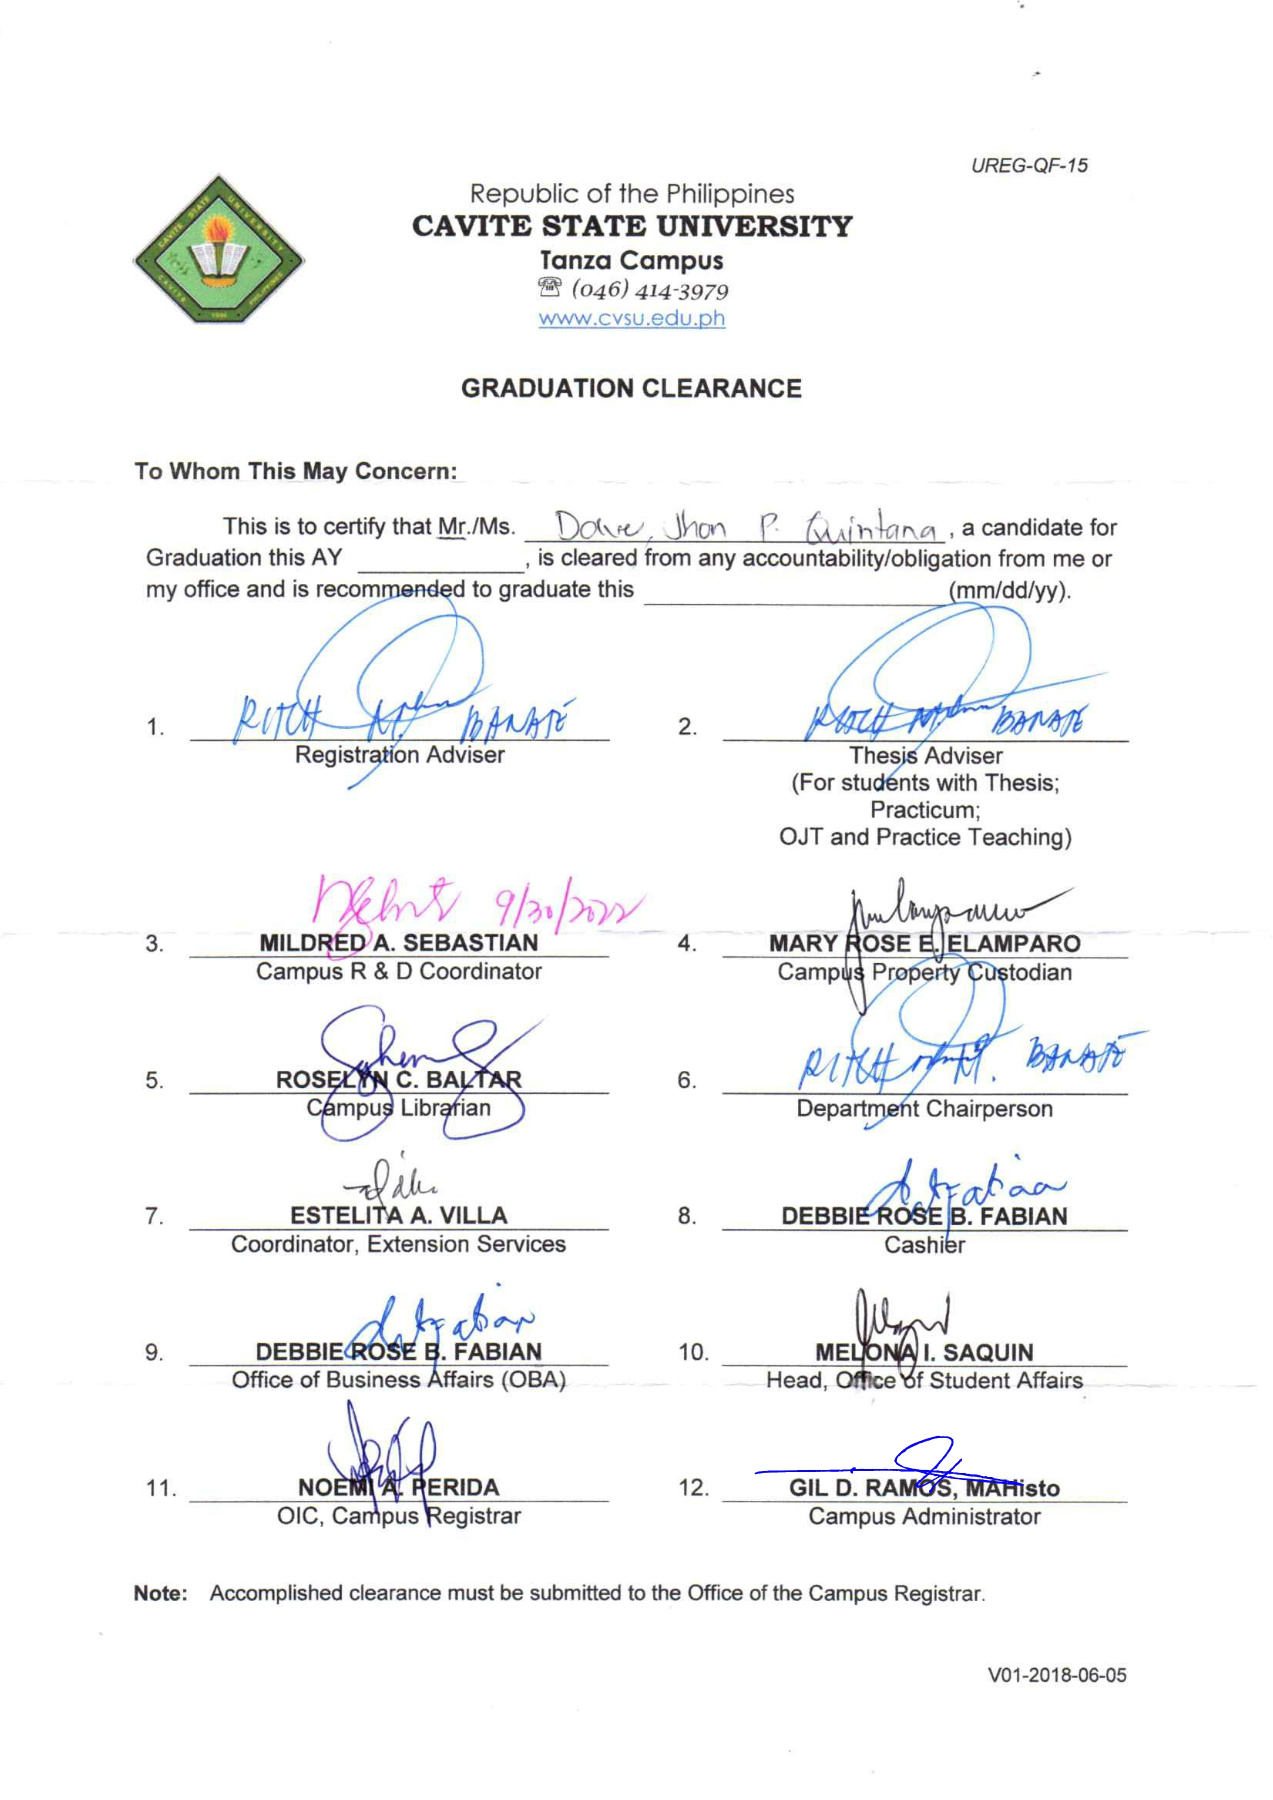 UREG-QF-15
Republic of the Philippines
CAVITE STATE UNIVERSITY
Tanza Campus
☏ (046) 414-3979
www.cvsu.edu.ph
CAVITE STATE UNIVERSITY
CAVITE PHILIPPINES
1906
GRADUATION CLEARANCE
To Whom This May Concern:
This is to certify that Mr./Ms. Dave, Jhon P. Quintana, a candidate for
Graduation this AY ______________, is cleared from any accountability/obligation from me or
my office and is recommended to graduate this __________________________(mm/dd/yy).
1. RITCH M. BANATE
Registration Adviser
2. RITCH M. BANATE
Thesis Adviser
(For students with Thesis;
Practicum;
OJT and Practice Teaching)
9/30/2022
3. MILDRED A. SEBASTIAN
Campus R & D Coordinator
4. MARY ROSE E. ELAMPARO
Campus Property Custodian
5. ROSELYN C. BALTAR
Campus Librarian
6. RITCH M. BANATE
Department Chairperson
7. ESTELITA A. VILLA
Coordinator, Extension Services
8. DEBBIE ROSE B. FABIAN
Cashier
9. DEBBIE ROSE B. FABIAN
Office of Business Affairs (OBA)
10. MELONA I. SAQUIN
Head, Office of Student Affairs
11. NOEMI A. PERIDA
OIC, Campus Registrar
12. GIL D. RAMOS, MAHisto
Campus Administrator
Note: Accomplished clearance must be submitted to the Office of the Campus Registrar.
V01-2018-06-05